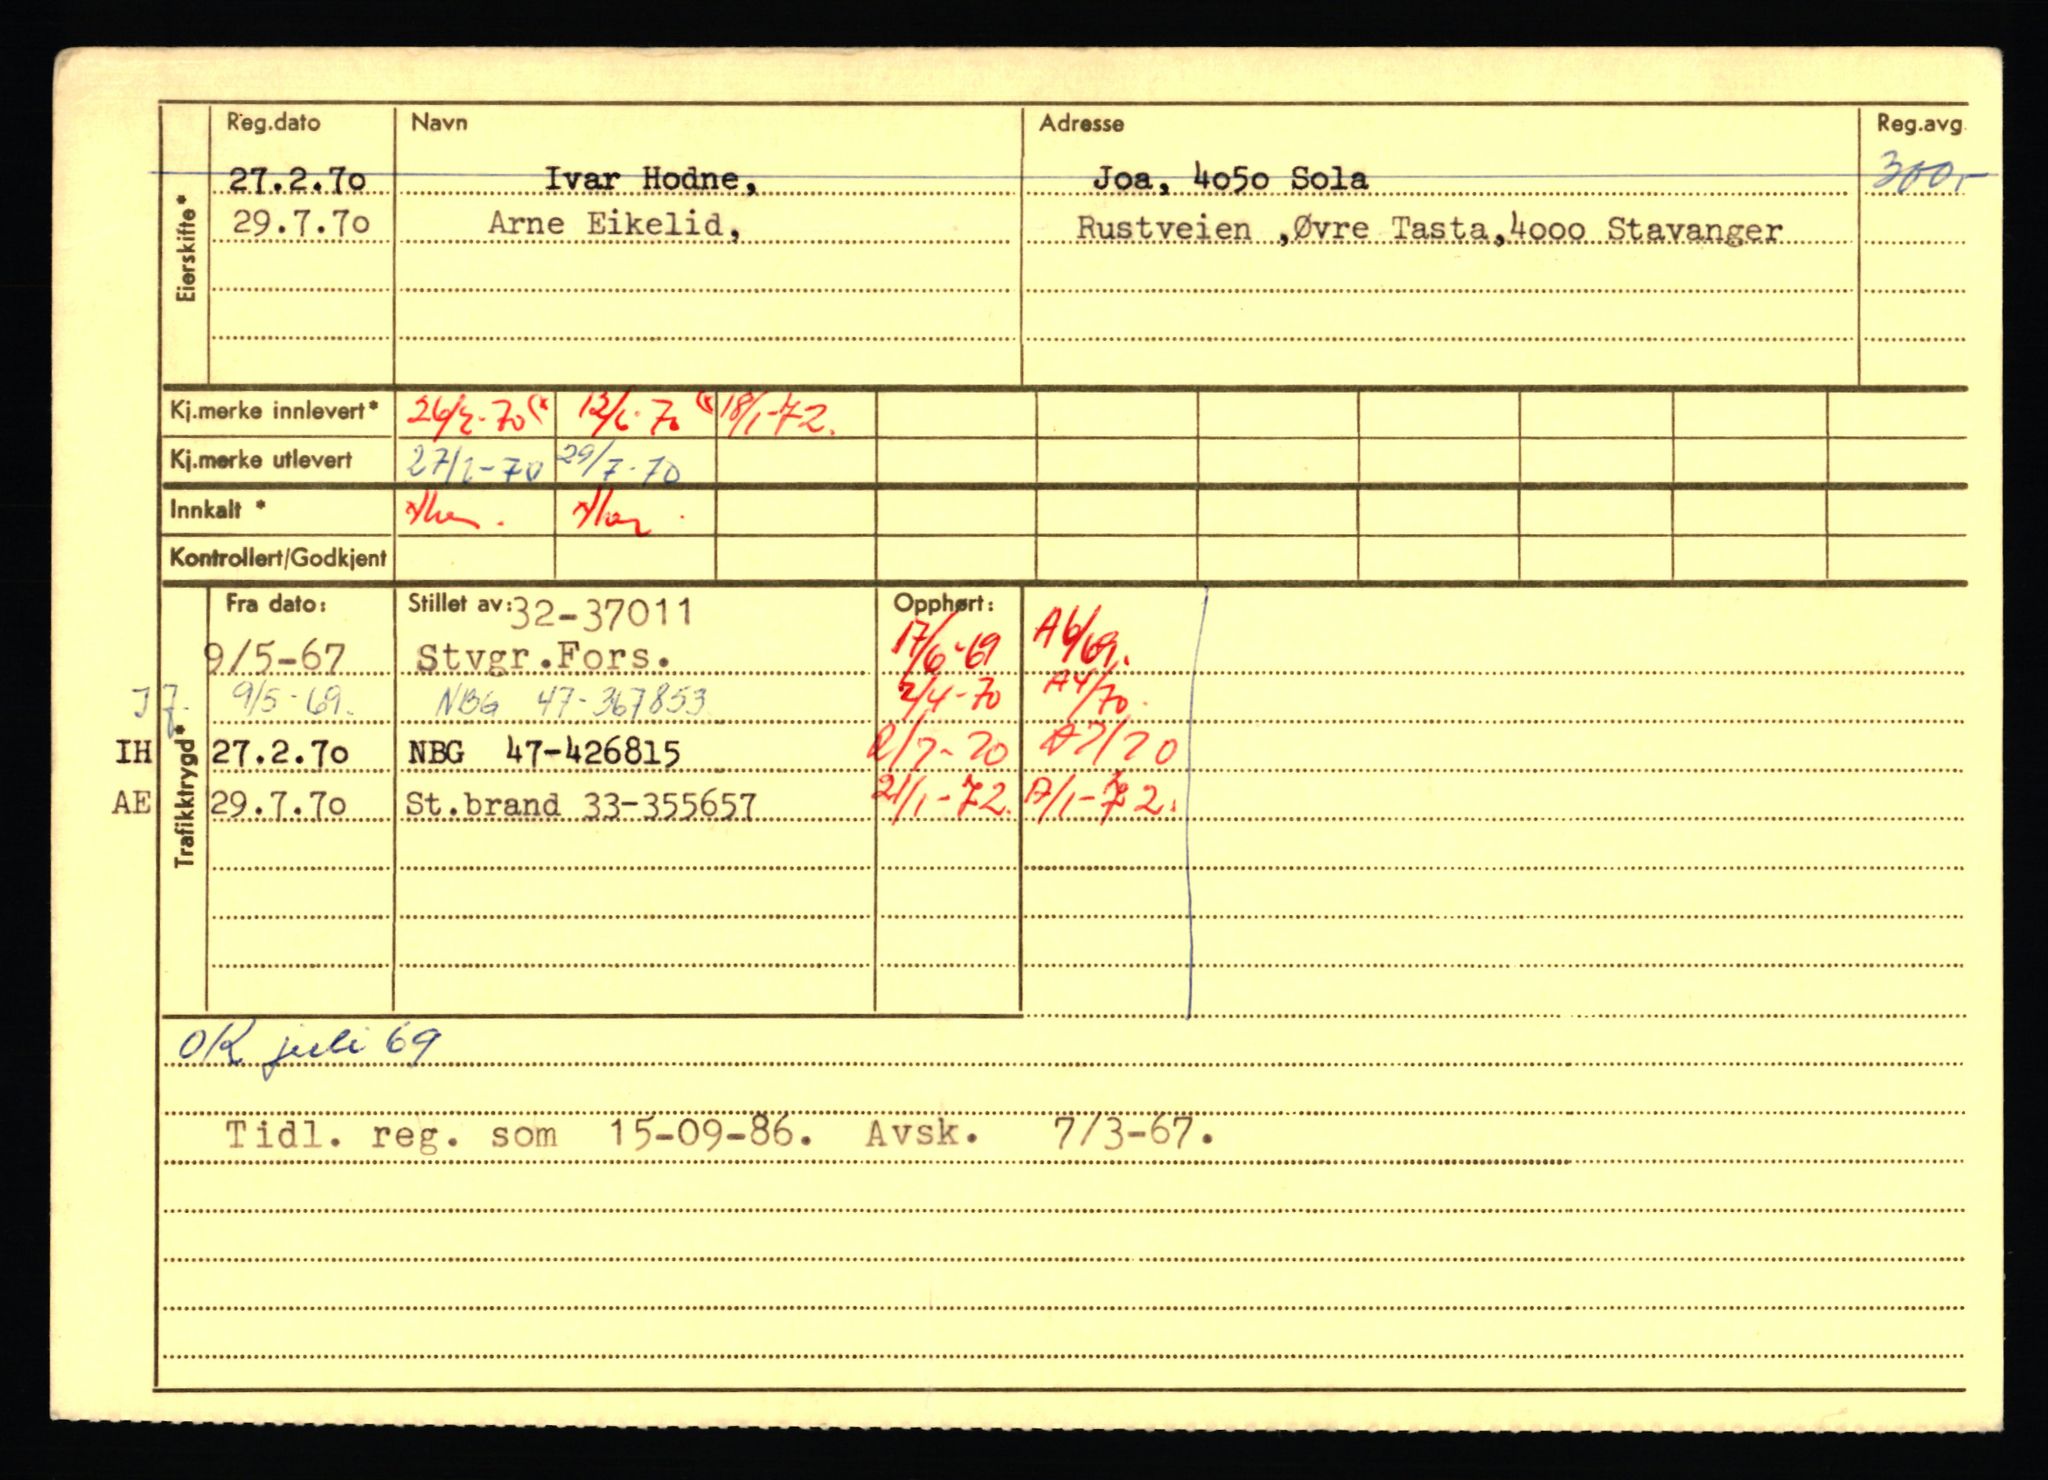 Reg.dato Navn Adresse Reg.avg.
27.2.70 Ivar Hodne, Joa, 4050 Sola 300,-
29.7.70 Arne Eikelid, Rustveien ,Øvre Tasta,4000 Stavanger
Eierskifte*
Kj.merke innlevert* 26/2-70 (* 12/6-70 (* 18/1-72.
Kj.merke utlevert 27/2-70 29/7-70
Innkalt *
Kontrollert/Godkjent
Fra dato: Stillet av: 32-37011 Opphørt:
9/5-67 Stvgr.Fors. 17/6-69 A6/69.
J 7. 9/5-69. NBG 47-367853 2/4-70 A4/70.
IH 27.2.70 NBG 47-426815 2/7-70 A7/70
AE 29.7.70 St.brand 33-355657 21/1-72. A/1-72.
Trafikktrygd*
OK juli 69
Tidl. reg. som 15-09-86. Avsk. 7/3-67.